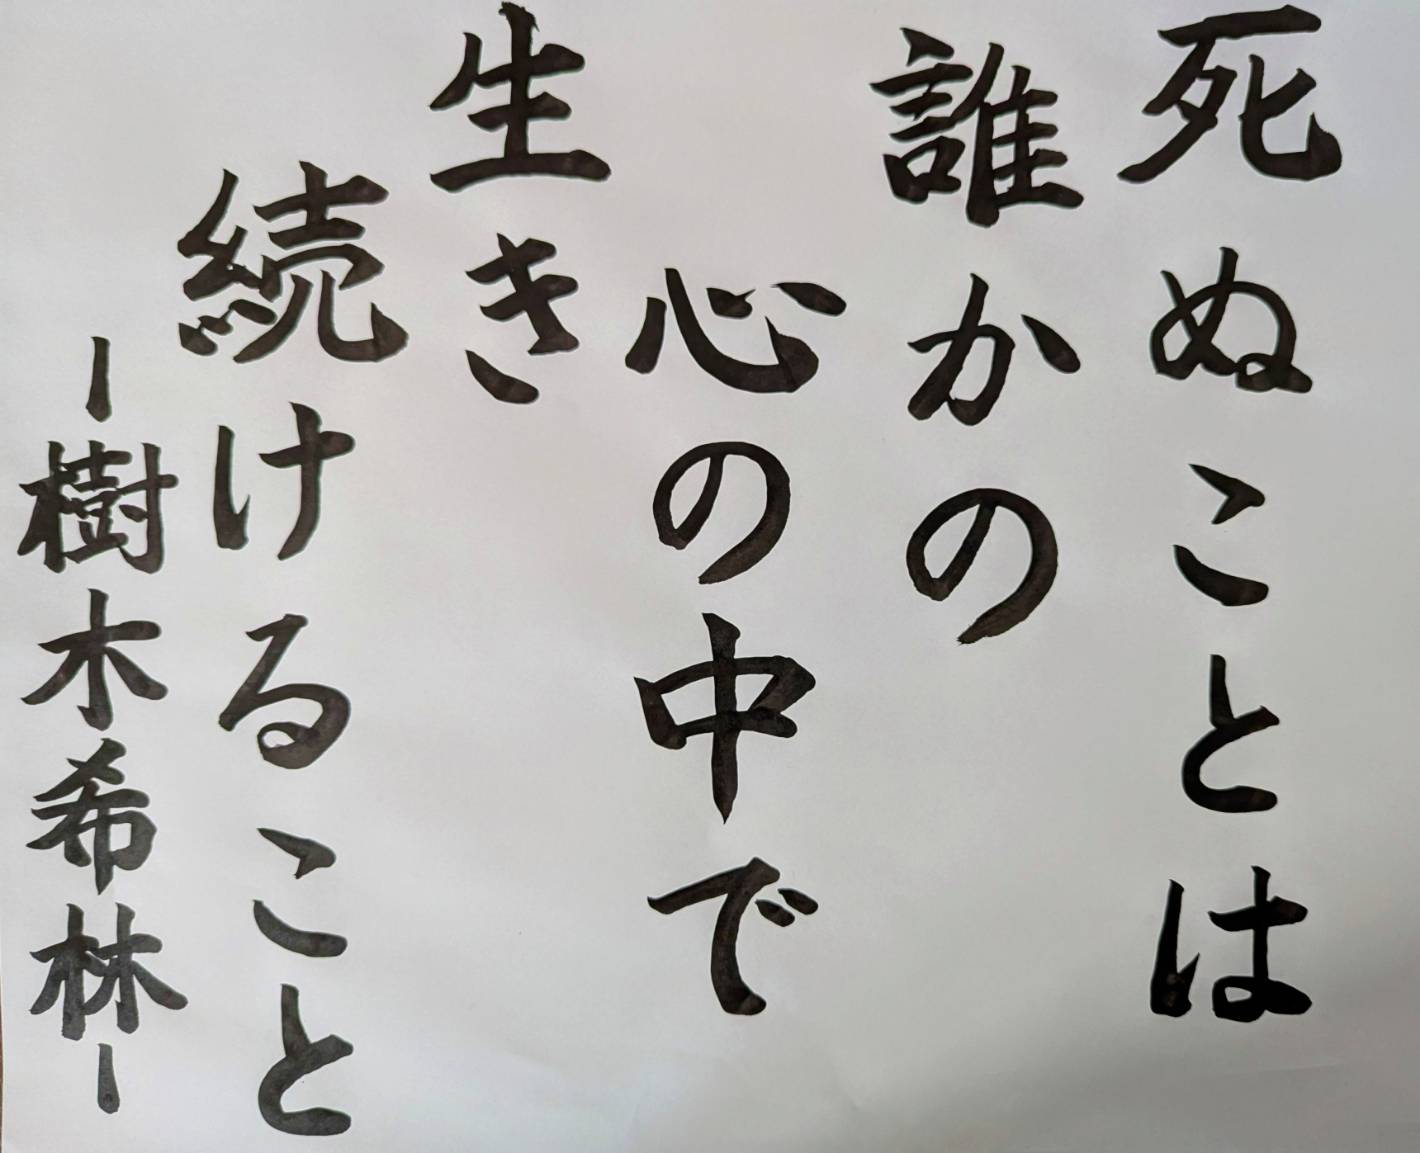 死ぬことは
誰かの
心の中で
生き
続けること
ー樹木希林ー